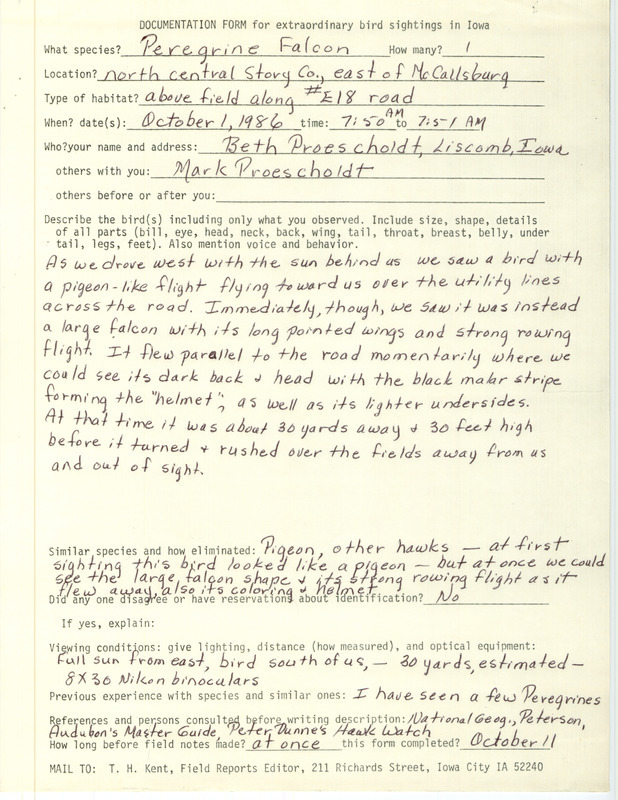 DOCUMENTATION FORM for extraordinary bird sightings in Iowa
What species? Peregrine Falcon How many? 1
Location? north central Story Co., east of McCallsburg
Type of habitat? above field along #E18 road
When? date(s): October 1, 1986 time: 7:50 AM to 7:51 AM
Who?your name and address: Beth Proescholdt, Liscomb, Iowa
others with you: Mark Proescholdt
others before or after you:
Describe the bird(s) including only what you observed. Include size, shape, details
of all parts (bill, eye, head, neck, back, wing, tail, throat, breast, belly, under
tail, legs, feet). Also mention voice and behavior.
As we drove west with the sun behind us we saw a bird with
a pigeon-like flight flying toward us over the utility lines
across the road. Immediately, though, we saw it was instead
a large falcon with its long pointed wings and strong rowing
flight. It flew parallel to the road momentarily where we
could see its dark back & head with the black malar stripe
forming the "helmet", as well as its lighter undersides.
At that time it was about 30 yards away & 30 feet high
before it turned & rushed over the fields away from us
and out of sight.
Similar species and how eliminated: Pigeon, other hawks — at first
sighting this bird looked like a pigeon — but at once we could
see the large falcon shape & its strong rowing flight as it
flew away, also its coloring & helmet
Did any one disagree or have reservations about identification? No
If yes, explain:
Viewing conditions: give lighting, distance (how measured), and optical equipment:
Full sun from east, bird south of us, — 30 yards, estimated —
8X30 Nikon binoculars
Previous experience with species and similar ones: I have seen a few Peregrines
References and persons consulted before writing description: National Geog., Peterson,
Audubon's Master Guide, Peter Dunne's Hawk Watch
How long before field notes made? at once this form completed? October 11
MAIL TO: T. H. Kent, Field Reports Editor, 211 Richards Street, Iowa City IA 52240